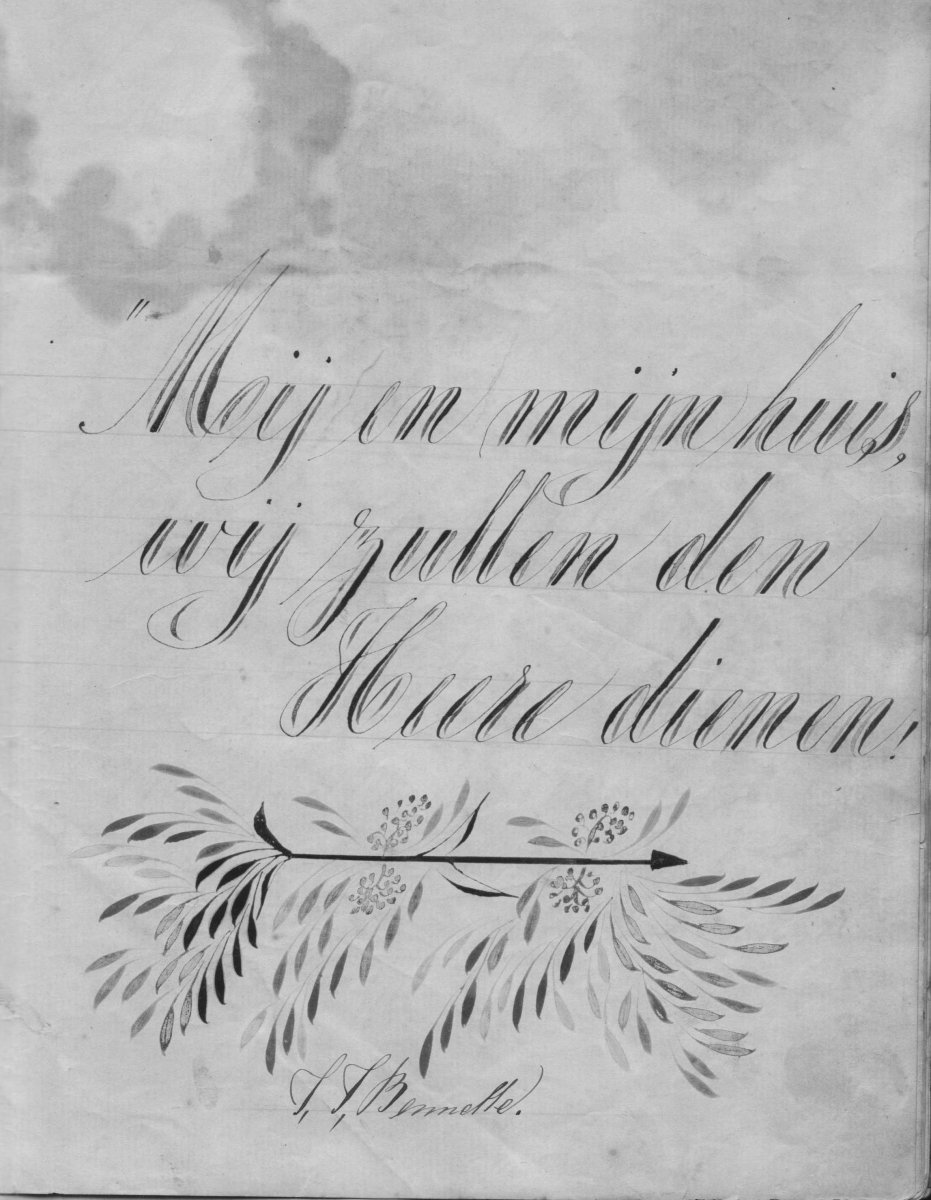 "Mij en mijn huis,
wij zullen den
Heere dienen!
J, J, Bennette.